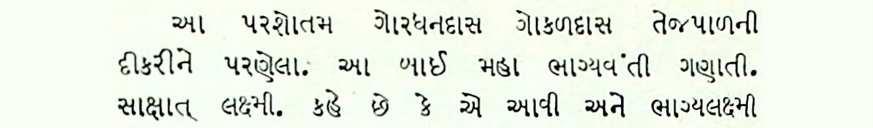 આ પરશોતમ ગોરધનદાસ ગોકળદાસ તેજપાળની
દીકરીને પરણેલા. આ બાઈ મહા ભાગ્યવંતી ગણાતી.
સાક્ષાત્ લક્ષ્મી. કહે છે કે એ આવી અને ભાગ્યલક્ષ્મી